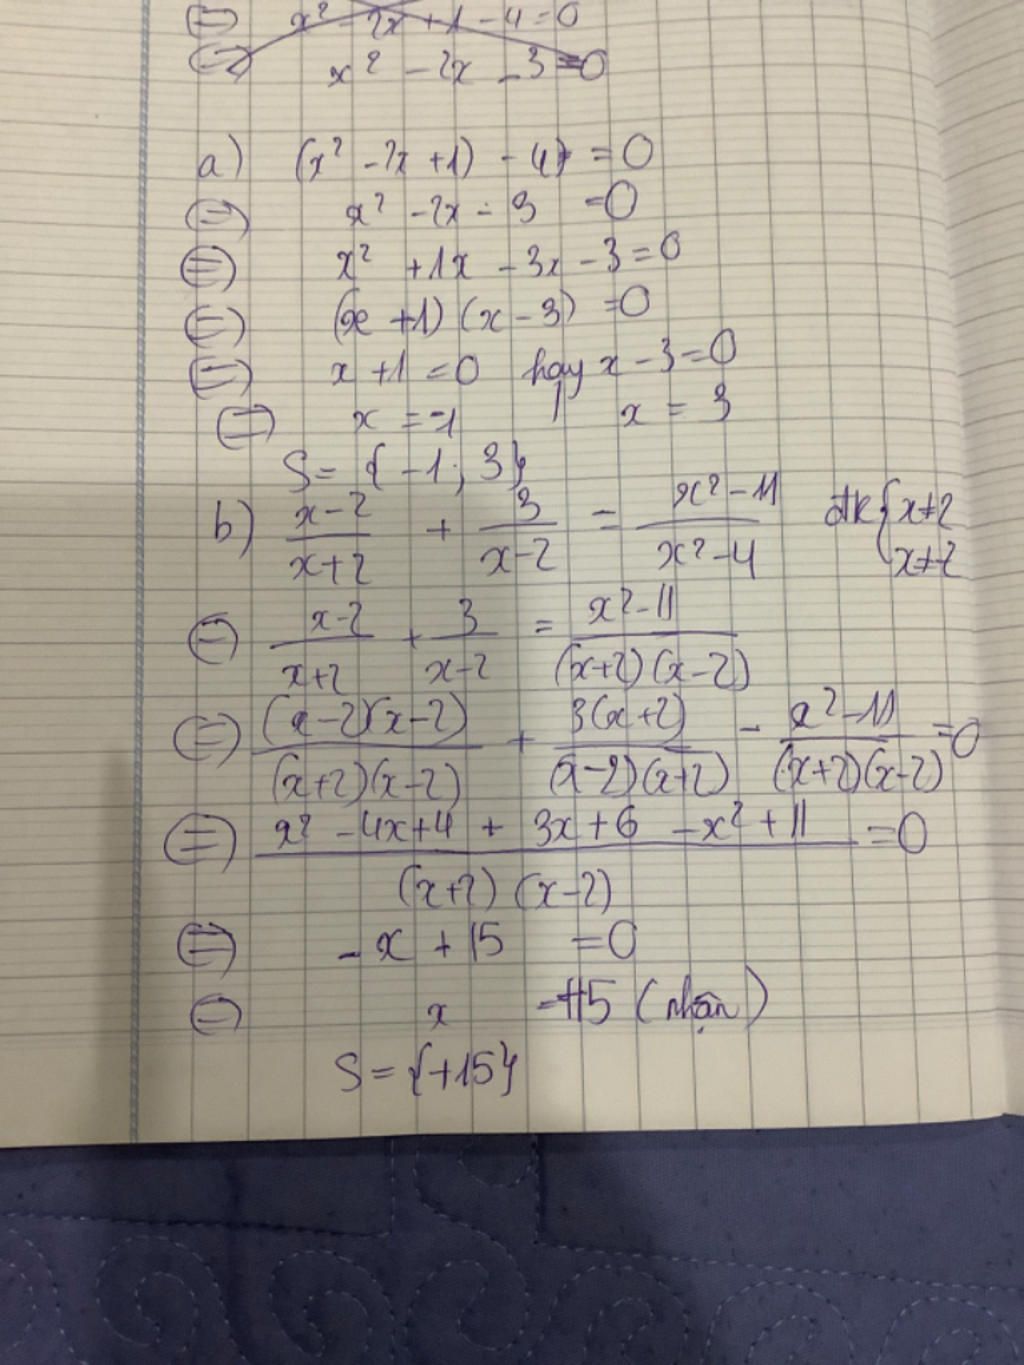 ⇔ x² - 2x + 1 - 4 = 0
⇔ x² - 2x - 3 = 0
a) (x² - 2x + 1) - 4) = 0
⇔ x² - 2x - 3 = 0
⇔ x² + 1x - 3x - 3 = 0
⇔ (x + 1) (x - 3) = 0
⇔ x + 1 = 0 hay x - 3 = 0
⇔ x = -1 | x = 3
S = { -1 ; 3 }
b) (x-2)/(x+2) + 3/(x-2) = (x²-11)/(x²-4) đk { x≠2 x≠-2
⇔ (x-2)/(x+2) + 3/(x-2) = (x²-11)/((x+2)(x-2))
⇔ ((x-2)(x-2))/((x+2)(x-2)) + (3(x+2))/((x-2)(x+2)) - (x²-11)/((x+2)(x-2)) = 0
⇔ (x² - 4x + 4 + 3x + 6 - x² + 11)/((x+2)(x-2)) = 0
⇔ -x + 15 = 0
⇔ x = +15 (nhận)
S = {+15}